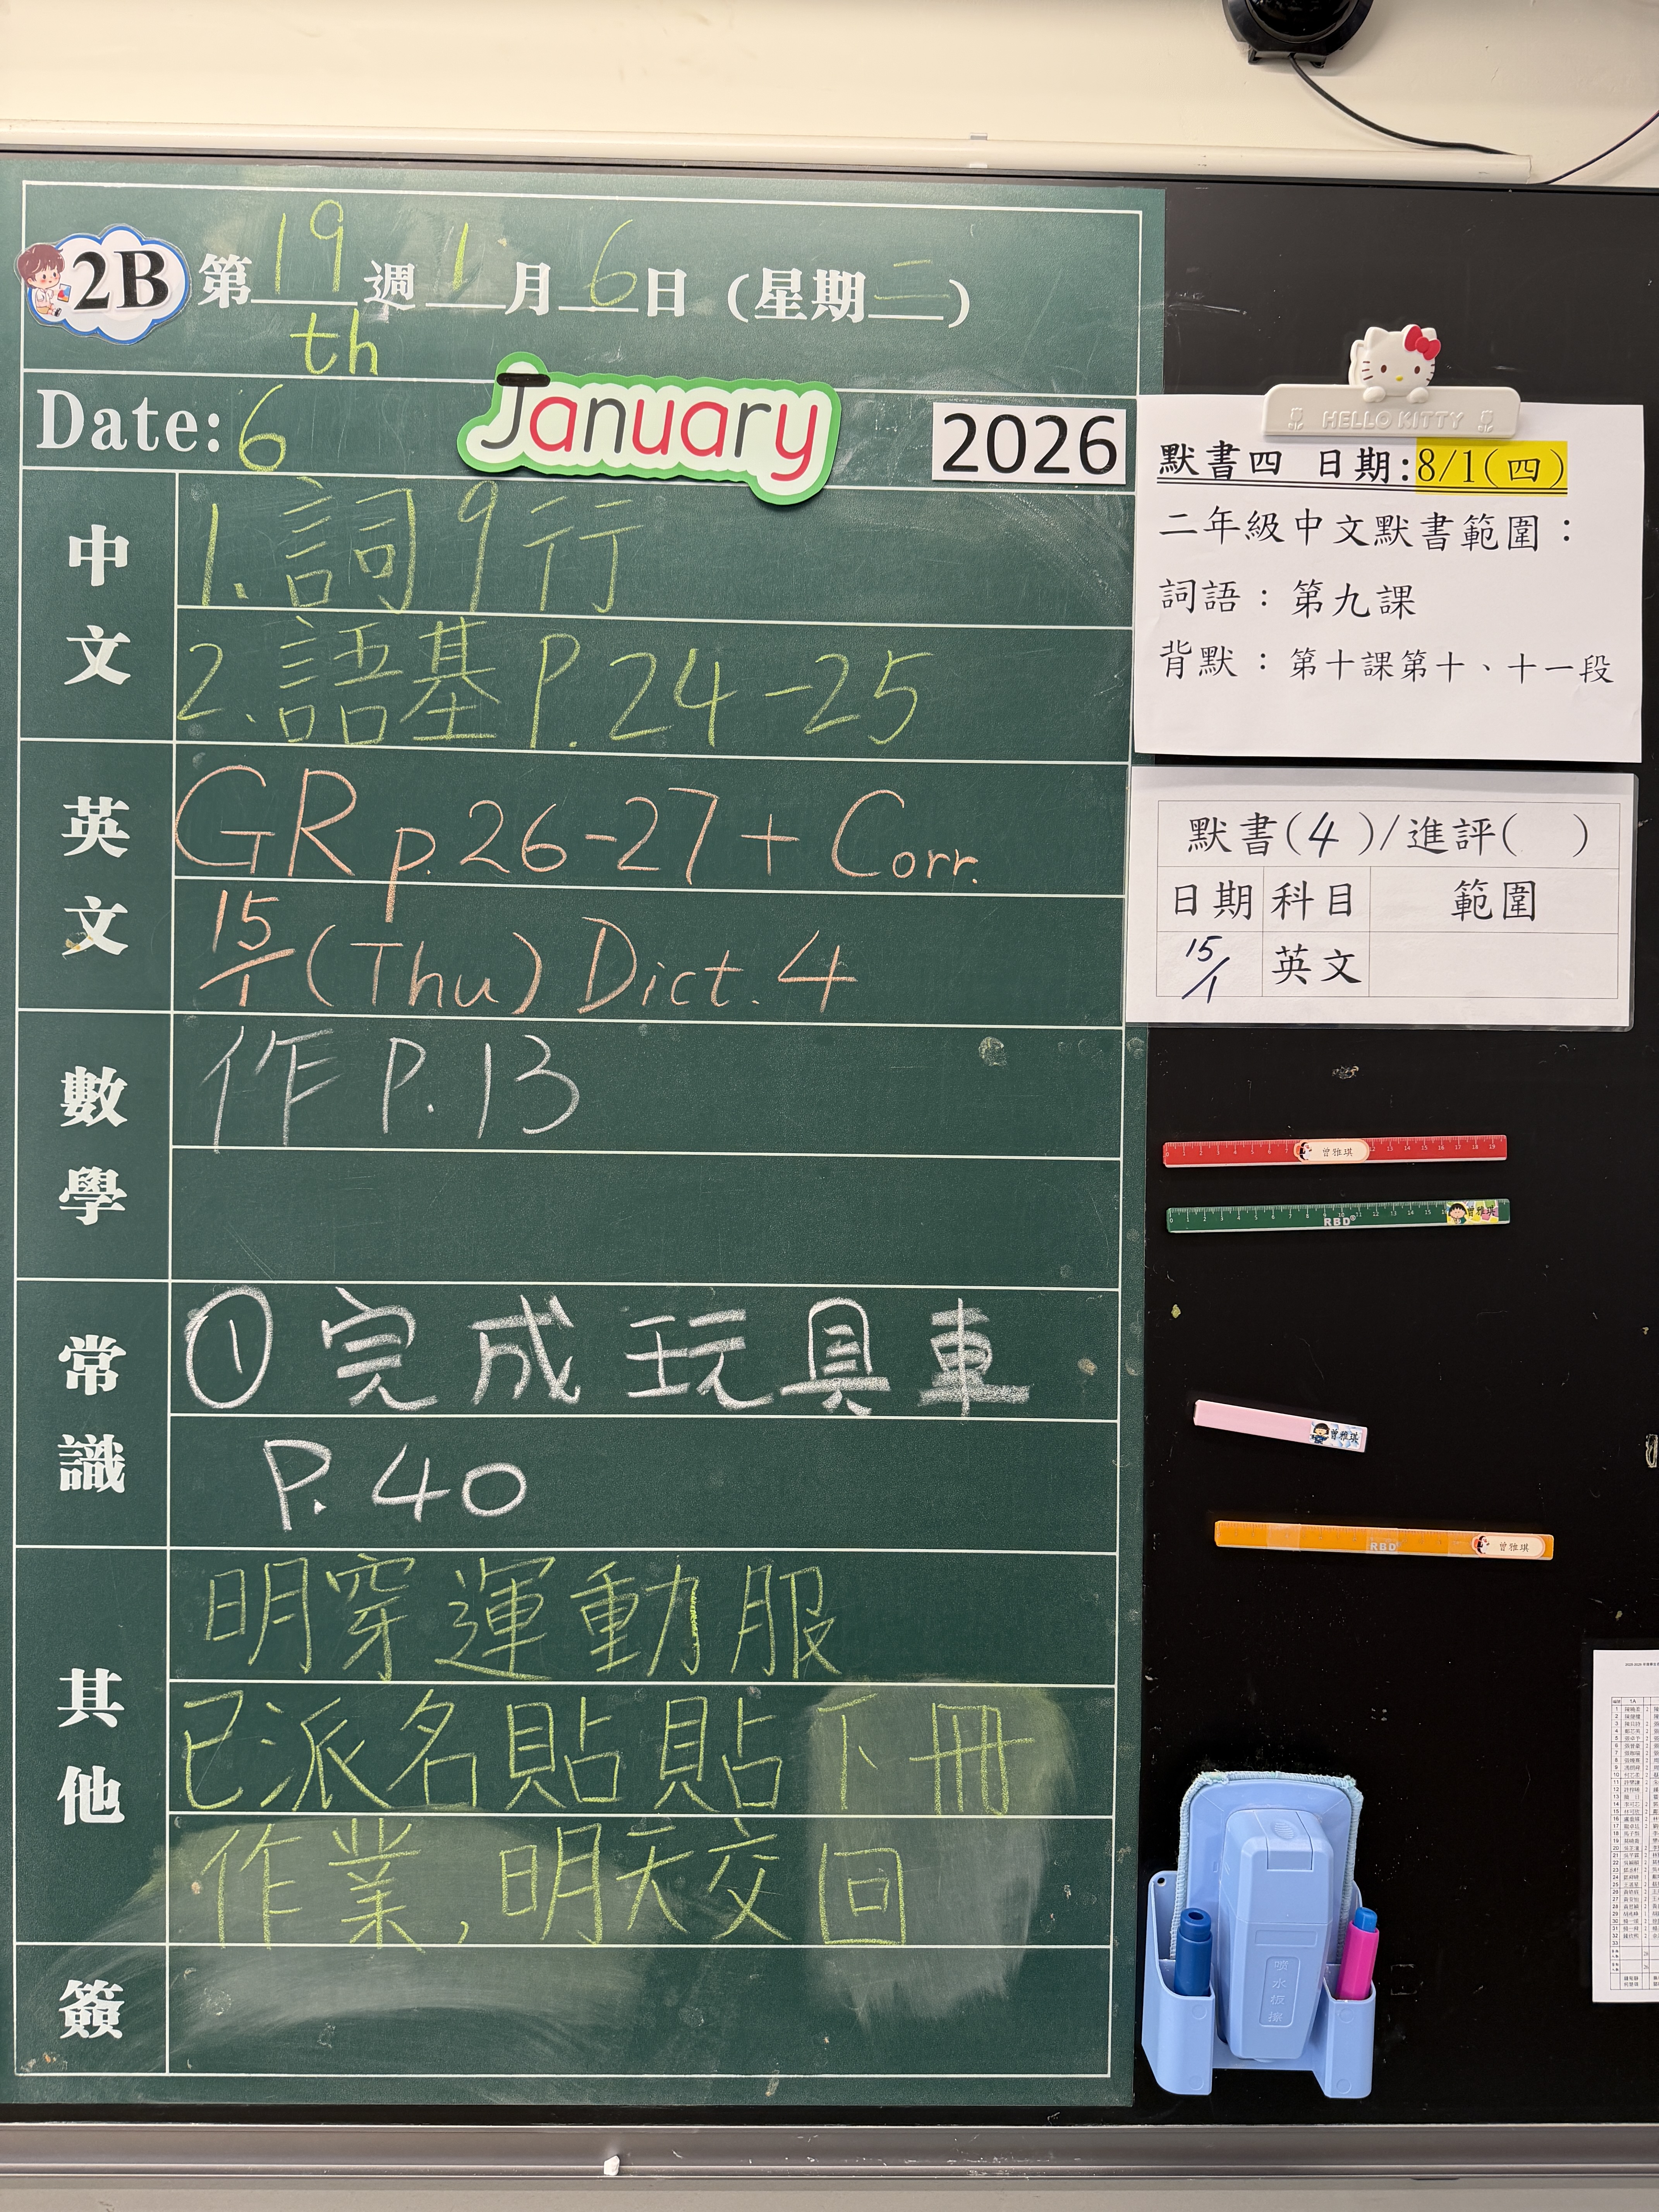 2B 第19週1月6日(星期二)
th
Date: 6 January 2026
中文
1. 詞9行
2. 語基 P. 24-25
英文
GR p. 26-27 + Corr.
15/1 (Thu) Dict. 4
數學
作 P. 13
常識
① 完成玩具車
P. 40
其他
明穿運動服
已派名貼貼下冊
作業,明天交回
簽
HELLO KITTY
默書四 日期:8/1(四)
二年級中文默書範圍:
詞語:第九課
背默:第十課第十、十一段
默書(4)/進評( )
日期 科目 範圍
15/1 英文
曾雅琪
RBD 曾雅琪
曾雅琪
RBD 曾雅琪
噴水板擦